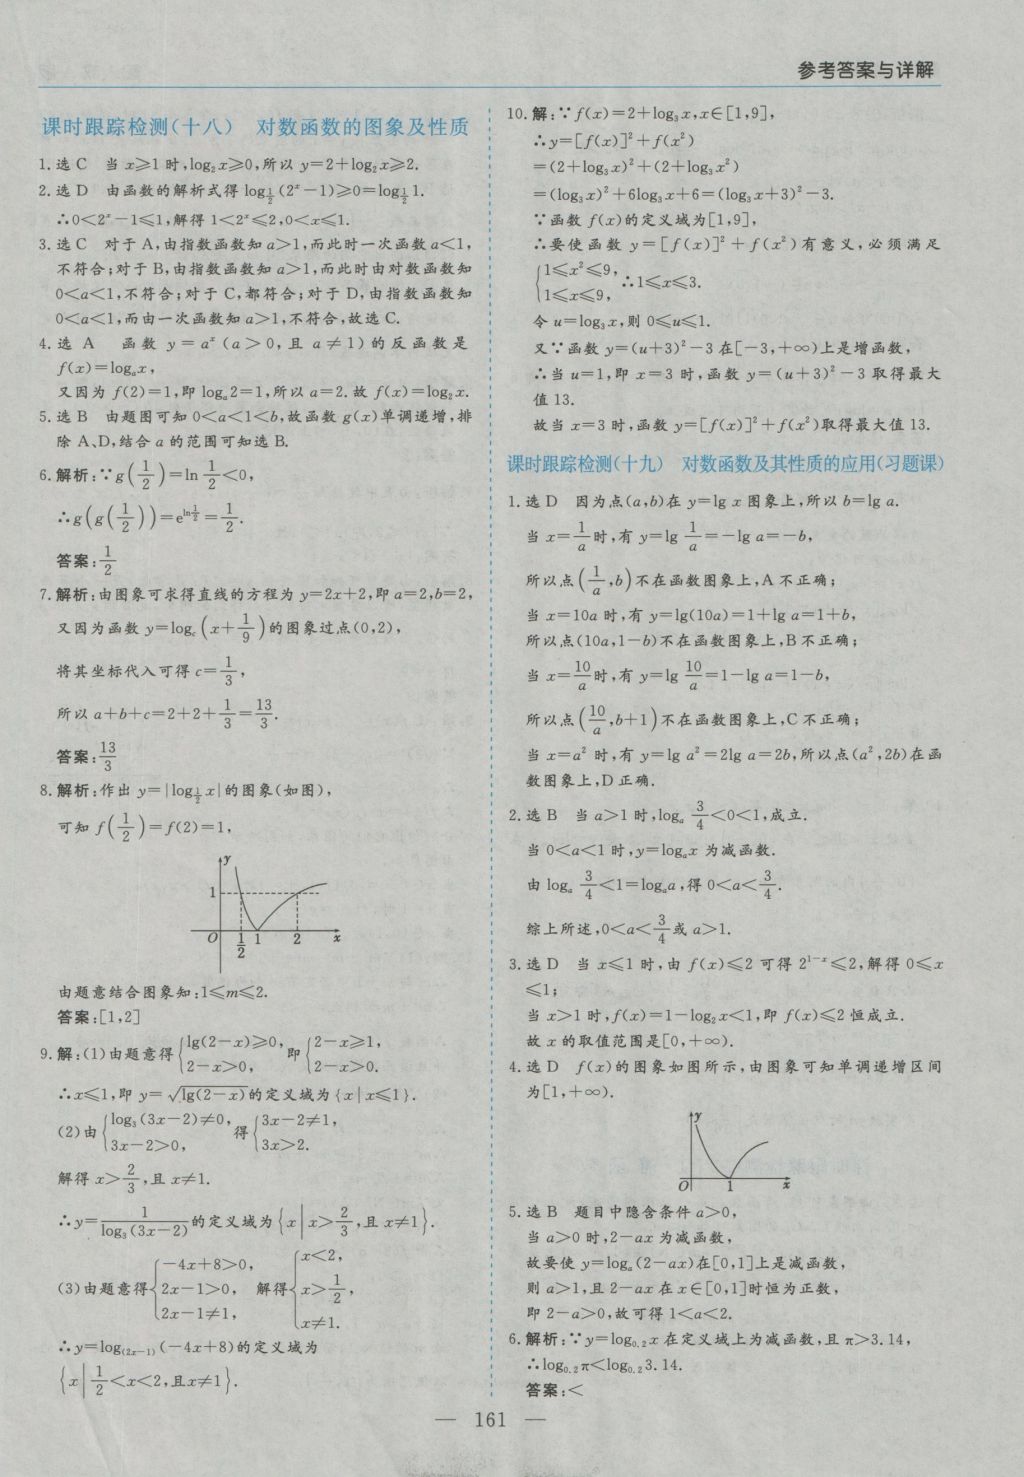 参考答案与详解
课时跟踪检测(十八) 对数函数的图象及性质
1.选 C 当 x≥1 时,log₂x≥0,所以 y=2+log₂x≥2.
2.选 D 由函数的解析式得 log_{1/2}(2ˣ-1)≥0=log_{1/2}1.
∴0<2ˣ-1≤1,解得 1<2ˣ≤2,0<x≤1.
3.选 C 对于 A,由指数函数知 a>1,而此时一次函数 a<1,
不符合;对于 B,由指数函数知 a>1,而此时由对数函数知
0<a<1,不符合;对于 C,都符合;对于 D,由指数函数知
0<a<1,而由一次函数知 a>1,不符合,故选 C.
4.选 A 函数 y=aˣ(a>0,且 a≠1)的反函数是
f(x)=logₐx,
又因为 f(2)=1,即 logₐ2=1,所以 a=2.故 f(x)=log₂x.
5.选 B 由题图可知 0<a<1<b,故函数 g(x)单调递增,排
除 A、D,结合 a 的范围可知选 B.
6.解析:∵g(1/2)=ln 1/2<0,
∴g(g(1/2))=e^{ln 1/2}=1/2.
答案:1/2
7.解析:由图象可求得直线的方程为 y=2x+2,即 a=2,b=2,
又因为函数 y=log_c(x+1/9)的图象过点(0,2),
将其坐标代入可得 c=1/3,
所以 a+b+c=2+2+1/3=13/3.
答案:13/3
8.解析:作出 y=|log_{1/2}x|的图象(如图),
可知 f(1/2)=f(2)=1,
y
1
O 1/2 1 2 x
由题意结合图象知:1≤m≤2.
答案:[1,2]
9.解:(1)由题意得{lg(2-x)≥0, 2-x>0, 即{2-x≥1, 2-x>0.
∴x≤1,即 y=√(lg(2-x))的定义域为{x|x≤1}.
(2)由{log₃(3x-2)≠0, 3x-2>0, 得{3x-2≠1, 3x>2.
解得 x>2/3,且 x≠1.
∴y=1/log₃(3x-2)的定义域为{x|x>2/3,且 x≠1}.
(3)由题意得{-4x+8>0, 2x-1>0, 2x-1≠1, 解得{x<2, x>1/2, x≠1.
∴y=log_{(2x-1)}(-4x+8)的定义域为
{x|1/2<x<2,且x≠1}.
10.解:∵f(x)=2+log₃x,x∈[1,9],
∴y=[f(x)]²+f(x²)
=(2+log₃x)²+(2+log₃x²)
=(log₃x)²+6log₃x+6=(log₃x+3)²-3.
∵函数 f(x)的定义域为[1,9],
∴要使函数 y=[f(x)]²+f(x²)有意义,必须满足
{1≤x²≤9, 1≤x≤9, ∴1≤x≤3.
令 u=log₃x,则 0≤u≤1.
又∵函数 y=(u+3)²-3 在[-3,+∞)上是增函数,
∴当 u=1,即 x=3 时,函数 y=(u+3)²-3 取得最大
值 13.
故当 x=3 时,函数 y=[f(x)]²+f(x²)取得最大值 13.
课时跟踪检测(十九) 对数函数及其性质的应用(习题课)
1.选 D 因为点(a,b)在 y=lg x 图象上,所以 b=lg a.
当 x=1/a 时,有 y=lg 1/a=-lg a=-b,
所以点(1/a,b)不在函数图象上,A 不正确;
当 x=10a 时,有 y=lg(10a)=1+lg a=1+b,
所以点(10a,1-b)不在函数图象上,B 不正确;
当 x=10/a 时,有 y=lg 10/a=1-lg a=1-b,
所以点(10/a,b+1)不在函数图象上,C 不正确;
当 x=a² 时,有 y=lg a²=2lg a=2b,所以点(a²,2b)在函
数图象上,D 正确.
2.选 B 当 a>1 时,logₐ 3/4<0<1,成立.
当 0<a<1 时,y=logₐx 为减函数.
由 logₐ 3/4<1=logₐa,得 0<a<3/4.
综上所述,0<a<3/4或 a>1.
3.选 D 当 x≤1 时,由 f(x)≤2 可得 2^{1-x}≤2,解得 0≤x
≤1;
当 x>1 时,f(x)=1-log₂x<1,即 f(x)≤2 恒成立.
故 x 的取值范围是[0,+∞).
4.选 D f(x)的图象如图所示,由图象可知单调递增区间
为[1,+∞).
y
O 1 x
5.选 B 题目中隐含条件 a>0,
当 a>0 时,2-ax 为减函数,
故要使 y=logₐ(2-ax)在[0,1]上是减函数,
则 a>1,且 2-ax 在 x∈[0,1]时恒为正数,
即 2-a>0,故可得 1<a<2.
6.解析:∵y=log₀.₂x 在定义域上为减函数,且 π>3.14,
∴log₀.₂π<log₀.₂3.14.
答案:<
— 161 —